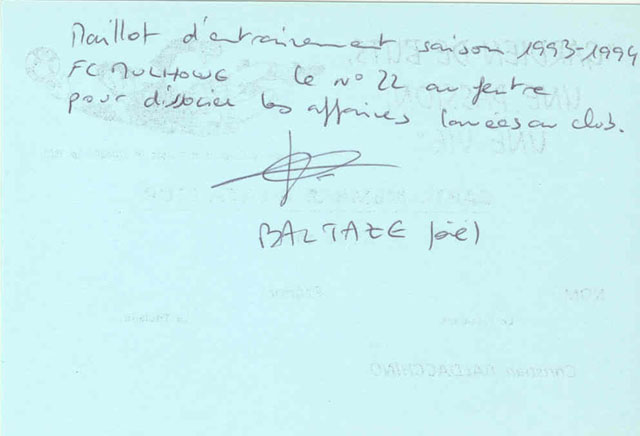 Maillot d'entrainement saison 1993-1994
FC MULHOUSE le n° 22 au feutre
pour dissocier les affaires lavées au club.
BALTAZE (Joël)
GARDIEN DE BUTS,
UNE PASSION,
UNE VIE
NOM
Christian BALDACCHINO